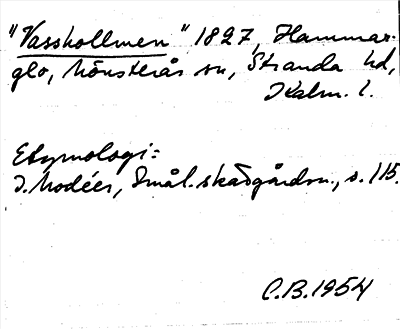 "Vassholmen" 1827, Hammar-
glo, Mönsterås sn, Stranda hd,
Kalm. l.
Etymologi:
I. Modéer, Smål. skärgårdsn., s. 115.
C.B. 1954